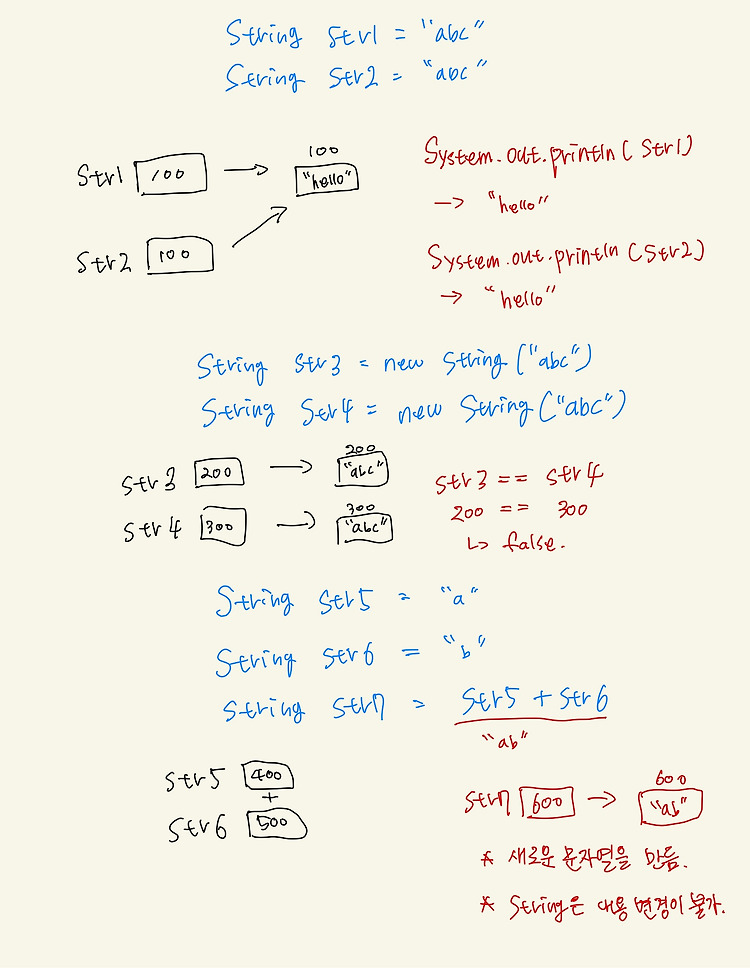 String str1 = "abc"
String str2 = "abc"
100
Str1 100 → "hello"
System.out.println( Str1)
→ "hello"
Str2 100
System.out.println (Str2)
→ "hello"
String str3 = new String ("abc")
String Str4 = new String ("abc")
200
str3 200 → "abc"
300
str4 300 → "abc"
str3 == str4
200 == 300
↳ false.
String str5 = "a"
String str6 = "b"
String str7 = str5 + str6
"ab"
str5 400
+
str6 500
600
str7 600 → "ab"
* 새로운 문자열을 만듬.
* String은 내용 변경이 불가.